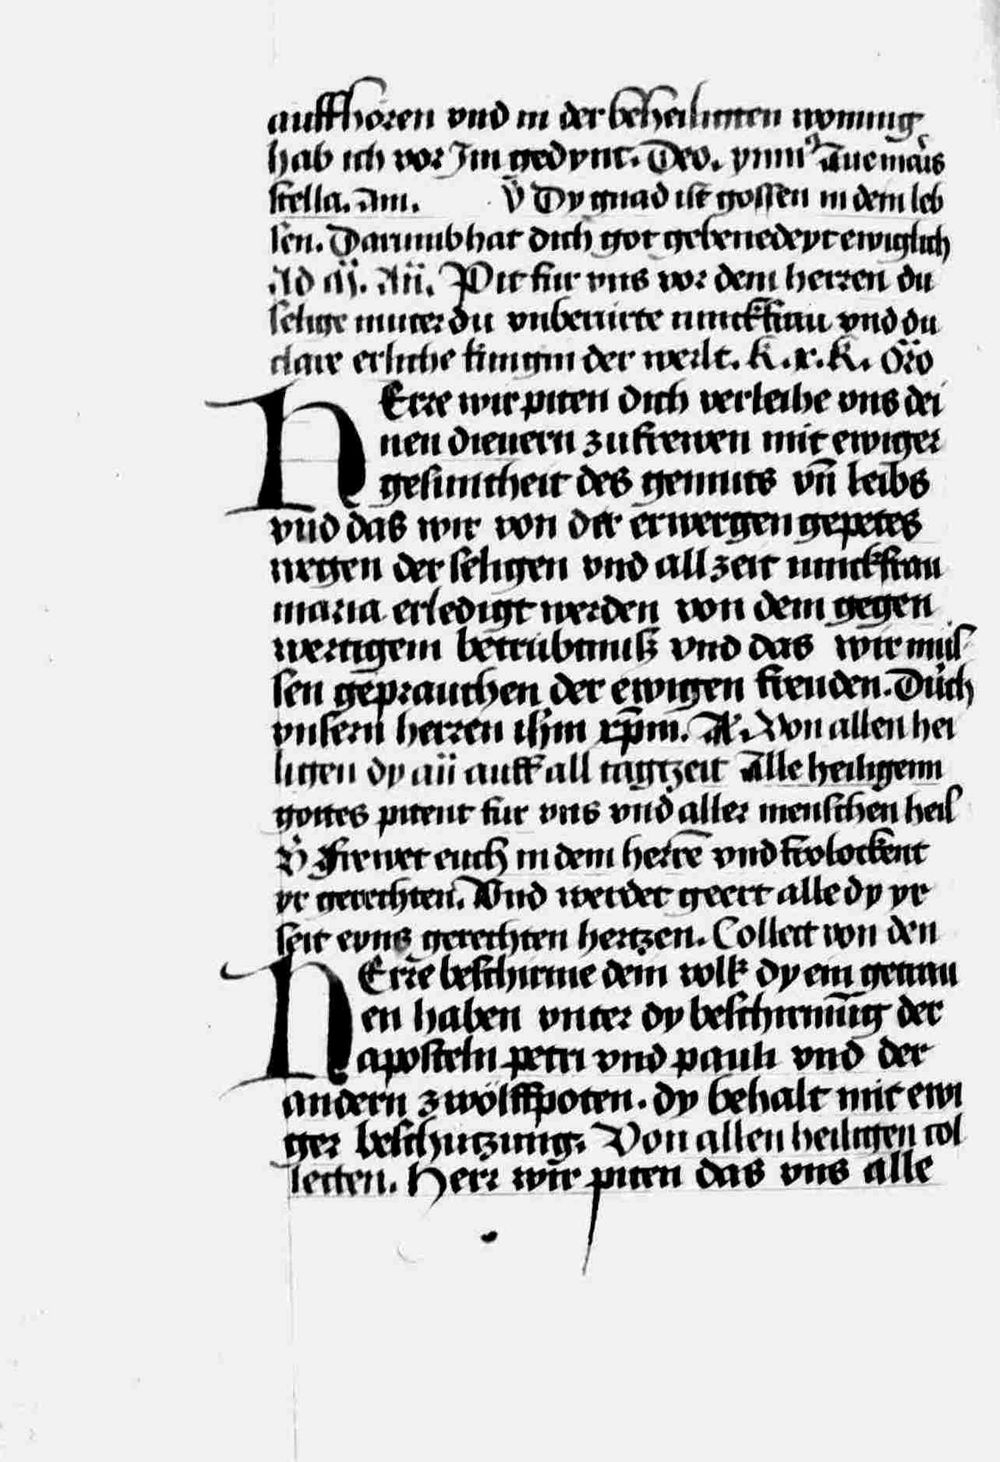 auffhören vnd in der beheiligten wonung
hab ich vor Im gedynt. Deo. ymn9 Aue maris
stella. Am. V Dy gnad ist gossen in dem leb
sen. Darumb hat dich got gebenedeyt ewiglich
Ad M. An. Pit fur vns vor dem herren du
selige muter du vnberurte iunckfrau vnd du
clare erliche kunigin der werlt. K. x. K. Oro
HErre wir piten dich verleihe vns dei
nen dienern zu frewen mit ewiger
gesuntheit des gemuts vn̄ leibs
vnd das wir von der erwergen gepetes
wegen der seligen vnd allzeit iunckfrau
maria erledigt werden von dem gegen
wertigem betrubtnuß vnd das wir mus
sen geprauchen der ewigen freuden. Durch
vnsern herren ihm xp̄m. A. Von allen hei
ligen dy an auff all tagtzeit Alle heiligenn
gottes pitent fur vns vnd aller menschen heil
V Frewet euch in dem herrē vnd frolockent
yr gerechten. Vnd werdet geert alle dy yr
seit eyns gerechten hertzen. Collect von den
HErre beschirme dein volk dy ein getrau
en haben vnter dy beschirmūg der
aposteln petri vnd pauli vnd der
andern zwölffpoten. dy behalt mit ewi
ger beschutzung. Von allen heiligen col
lecten. Herr wir piten das vns alle